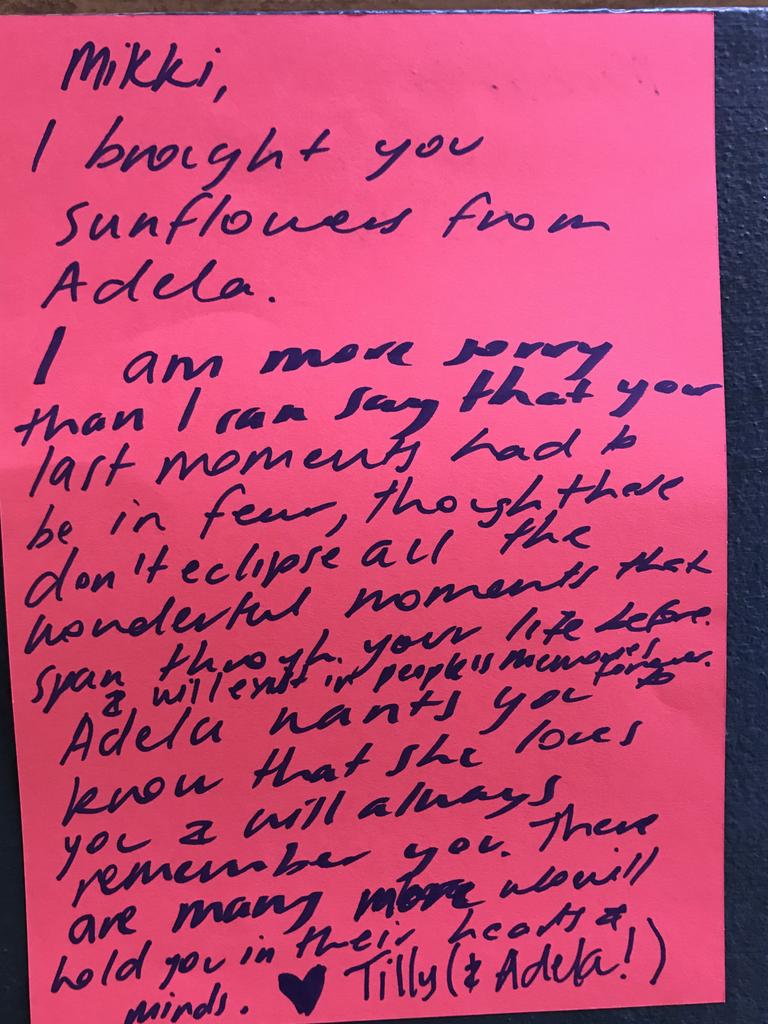 Mikki,
I brought you
sunflowers from
Adela.
I am more sorry
than I can say that your
last moments had to
be in fear, though these
don't eclipse all the
wonderful moments that
span through your life before.
& will exist in people's memories forever.
Adela wants you to
know that she loves
you & will always
remember you. There
are many more who will
hold you in their hearts &
minds. ♥ Tilly (& Adela!)